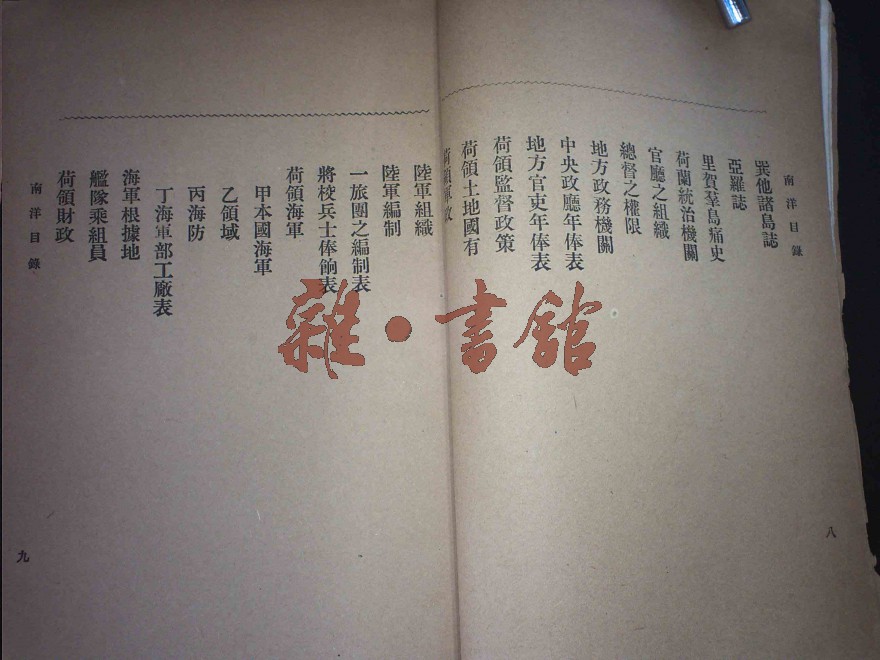 南洋目錄
巽他諸島誌
亞羅誌
里賀葦島痛史
荷蘭統治機關
官廳之組織
總督之權限
地方政務機關
中央政廳年俸表
地方官吏年俸表
荷領監督政策
荷領土地國有
八
荷領軍政
陸軍組織
陸軍編制
一旅團之編制表
將校兵士俸餉表
荷領海軍
甲本國海軍
乙領域
丙海防
丁海軍部工廠表
海軍根據地
艦隊乘組員
荷領財政
南洋目錄
九
雜·書館